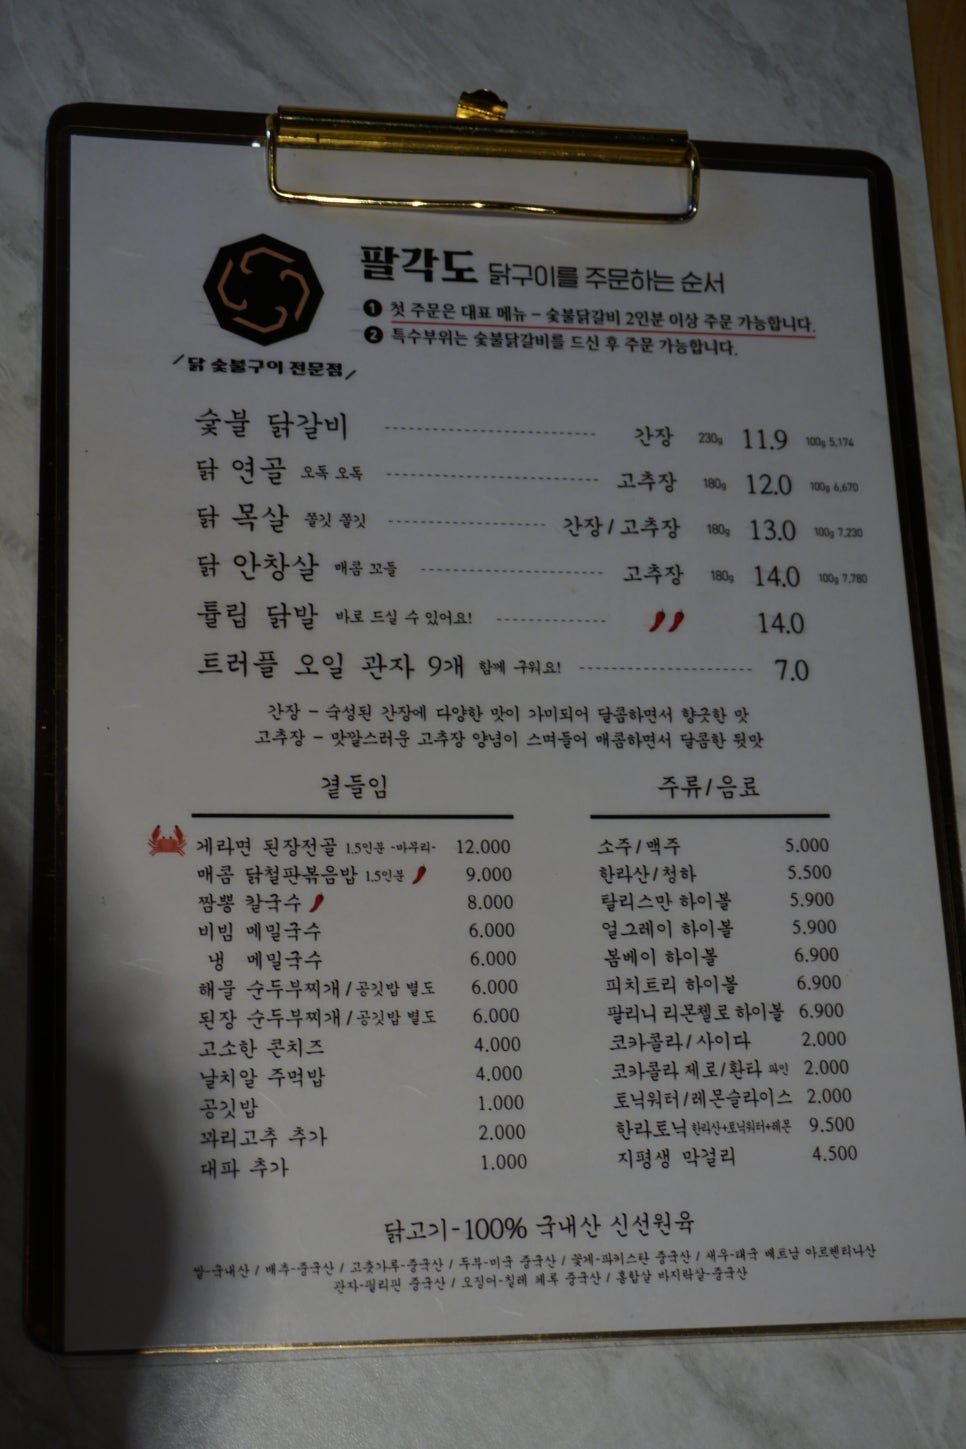 팔각도 닭구이를 주문하는 순서
1 첫 주문은 대표 메뉴 - 숯불닭갈비 2인분 이상 주문 가능합니다.
2 특수부위는 숯불닭갈비를 드신 후 주문 가능합니다.
닭 숯불구이 전문점
숯불 닭갈비 간장 230g 11.9 100g 5,174
닭 연골 오독 오독 고추장 180g 12.0 100g 6,670
닭 목살 쫄깃 쫄깃 간장 / 고추장 180g 13.0 100g 7,230
닭 안창살 매콤 꼬들 고추장 180g 14.0 100g 7,780
튤립 닭발 바로 드실 수 있어요! 14.0
트러플 오일 관자 9개 함께 구워요! 7.0
간장 - 숙성된 간장에 다양한 맛이 가미되어 달콤하면서 향긋한 맛
고추장 - 맛깔스러운 고추장 양념이 스며들어 매콤하면서 달콤한 뒷맛
곁들임
게라면 된장전골 1.5인분 -마무리- 12.000
매콤 닭철판볶음밥 1.5인분 9.000
짬뽕 칼국수 8.000
비빔 메밀국수 6.000
냉 메밀국수 6.000
해물 순두부찌개 / 공깃밥 별도 6.000
된장 순두부찌개 / 공깃밥 별도 6.000
고소한 콘치즈 4.000
날치알 주먹밥 4.000
공깃밥 1.000
꽈리고추 추가 2.000
대파 추가 1.000
주류/음료
소주/맥주 5.000
한라산/청하 5.500
탈리스만 하이볼 5.900
얼그레이 하이볼 5.900
봄베이 하이볼 6.900
피치트리 하이볼 6.900
팔리니 리몬첼로 하이볼 6.900
코카콜라/사이다 2.000
코카콜라 제로/환타 파인 2.000
토닉워터/레몬슬라이스 2.000
한라토닉 한라산+토닉워터+레몬 9.500
지평생 막걸리 4.500
닭고기-100% 국내산 신선원육
쌀-국내산 / 배추-중국산 / 고춧가루-중국산 / 두부-미국 중국산 / 꽃게-파키스탄 중국산 / 새우-태국 베트남 아르헨티나산
관자-필리핀 중국산 / 오징어-칠레 페루 중국산 / 홍합살 바지락살-중국산